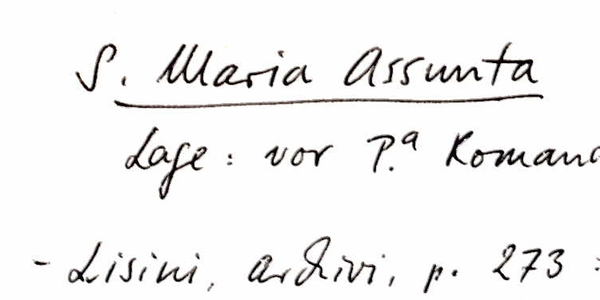 S. Maria Assunta
Lage : vor P.ª Romana
- Lisini, archivi, p. 273 :